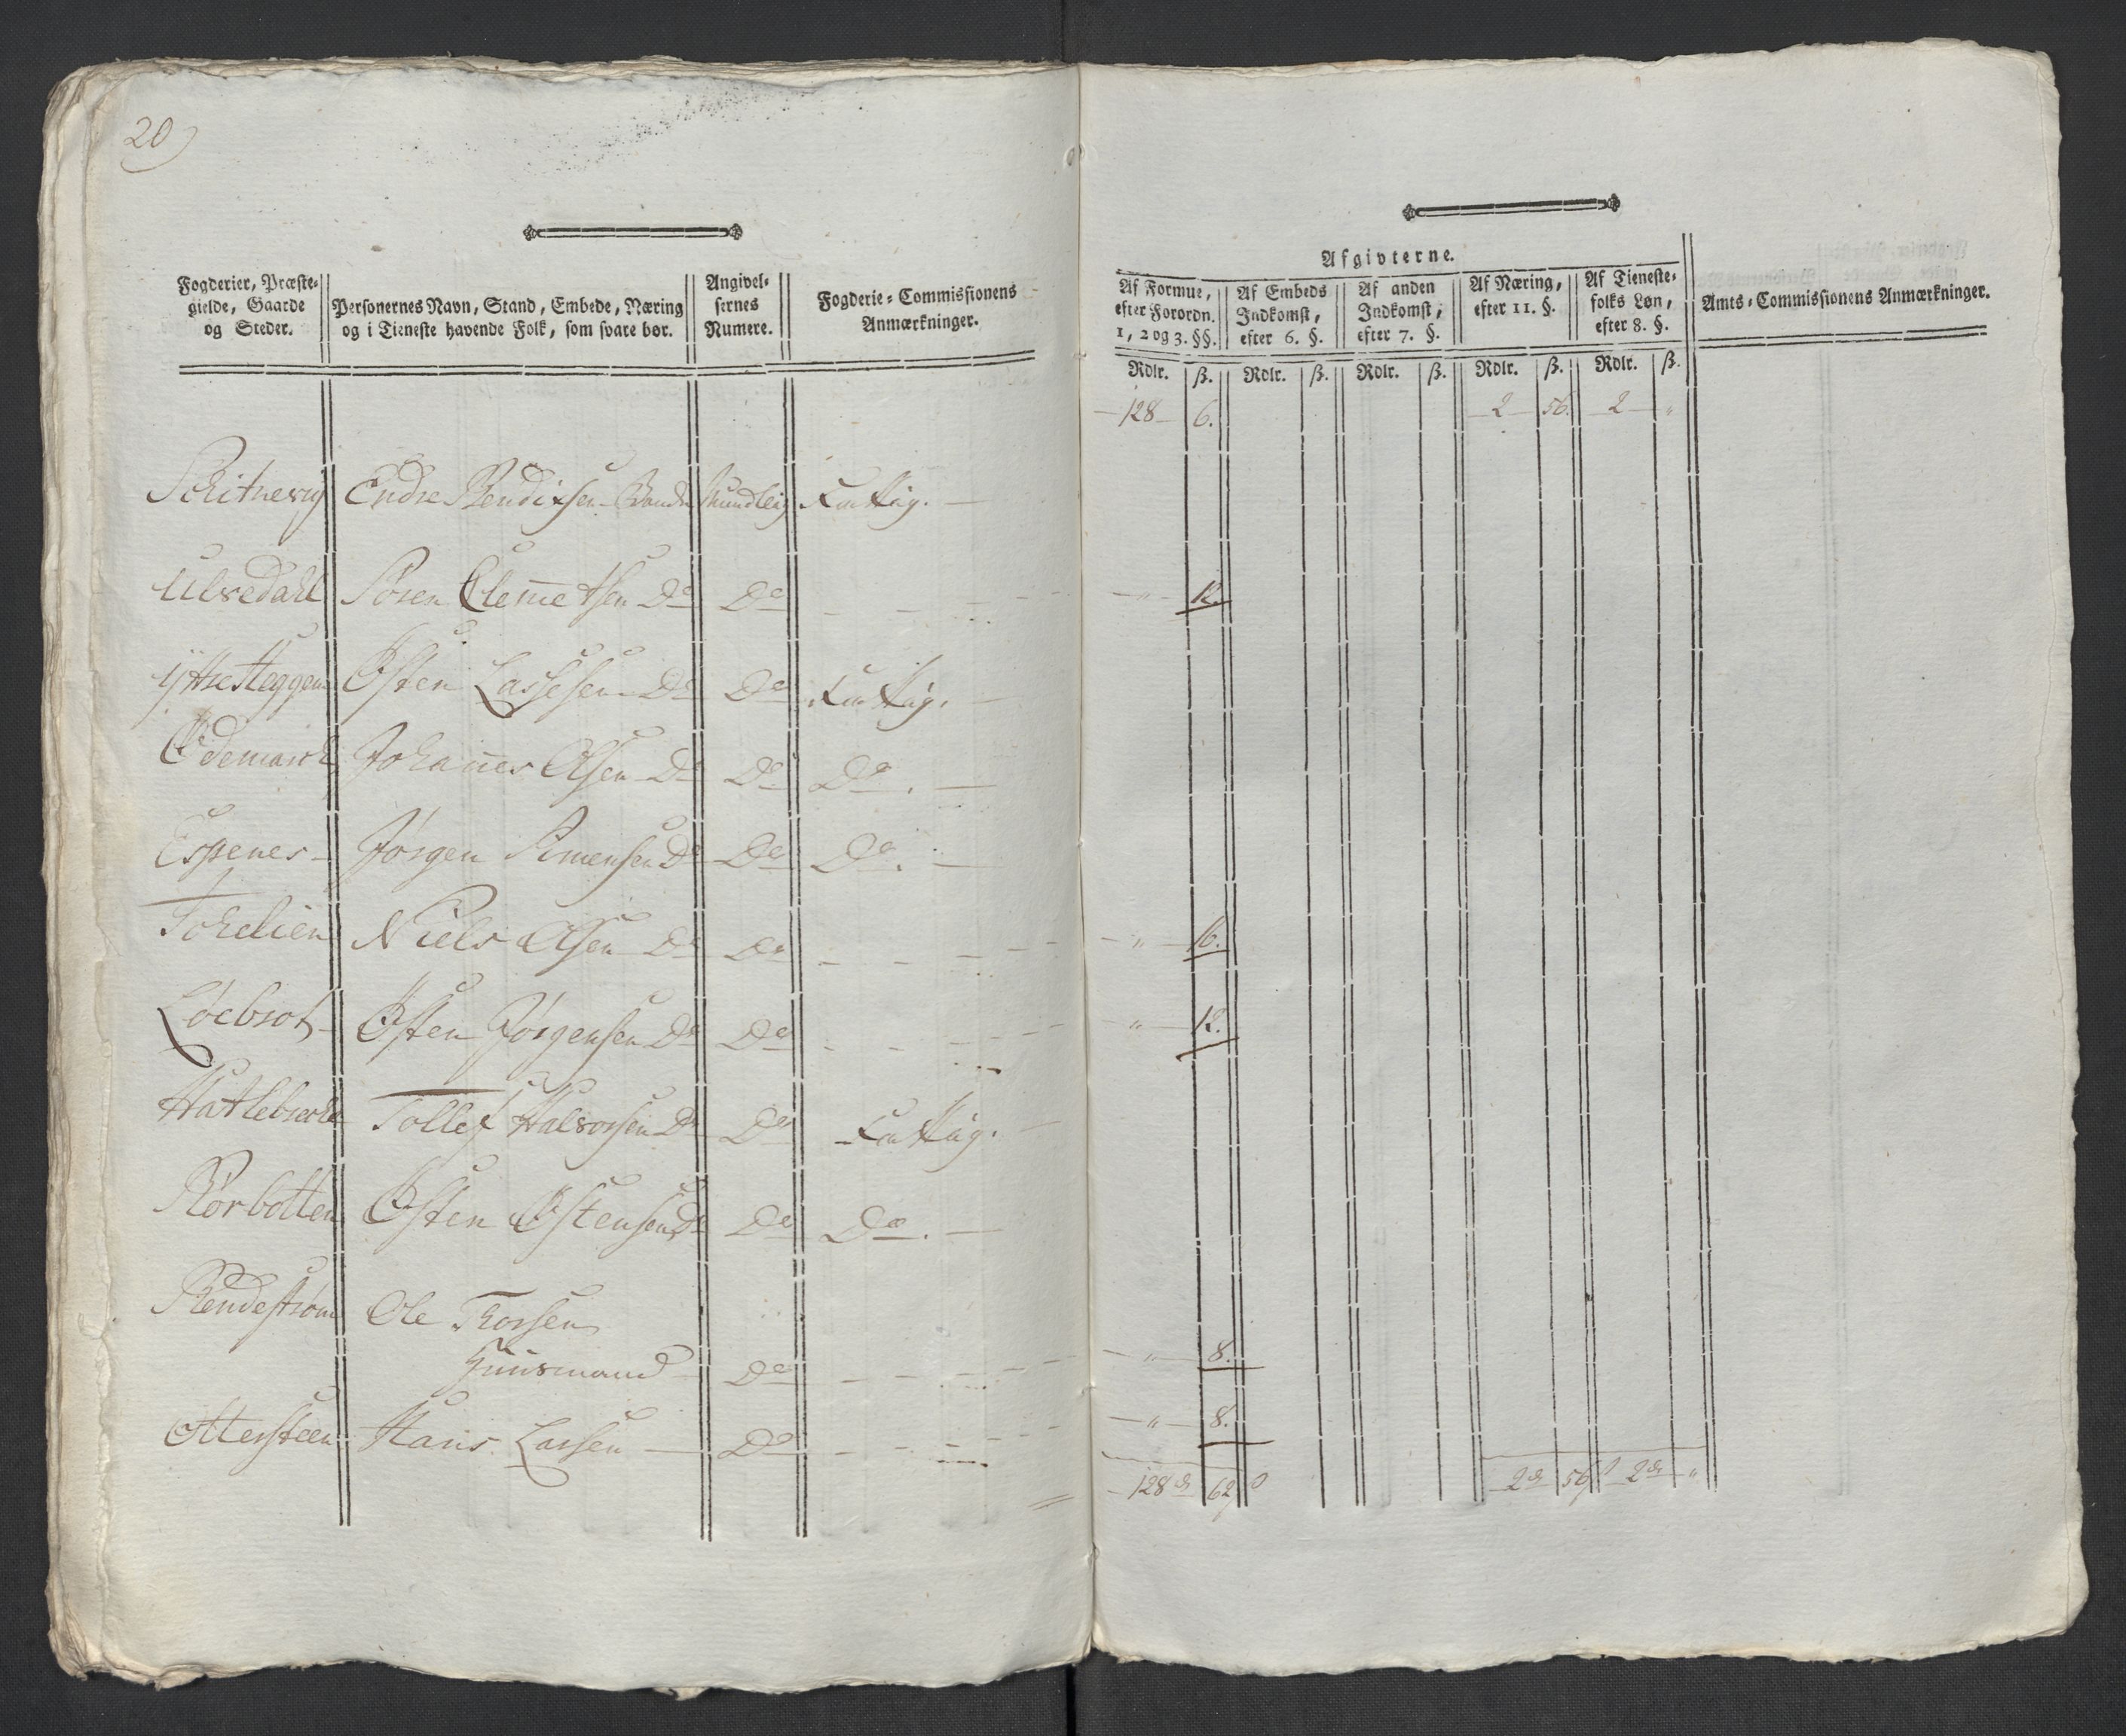 20)
Fogderier, Præste-
gielde, Gaarde
og Steder.
Personernes Navn, Stand, Embede, Næring
og i Tieneste havende Folk, som svare bør.
Angivel-
sernes
Numere.
Fogderie-Commissionens
Anmærkninger.
Afgivterne.
Af Formue,
efter Forordn.
1, 2 og 3. §§.
Af Embeds
Indkomst,
efter 6. §.
Af anden
Indkomst,
efter 7. §.
Af Næring,
efter 11. §.
Af Tieneste-
folks Løn,
efter 8. §.
Amts-Commissionens Anmærkninger.
Rdlr. ß. Rdlr. ß. Rdlr. ß. Rdlr. ß. Rdlr. ß.
128 6. 2 56. 2 "
Endre Bendixsen Bonde Mundtlig Fattig.
Ulvedahl Søren Clemetsen Do Do " 12.
Ÿttre Heggen Østen Lassesen Do Do Fattig.
Ødemark Johanes Olsen Do Do Do.
Espenes Jørgen Simensen Do Do Do.
Niels Olsen Do Do " 16.
Løebrot Østen Jørgensen Do Do " 12.
Tollef Halvorsen Do Do Fattig.
Rørbotten Østen Østensen Do Do Do.
Ole Thorsen
Huusmand Do " 8.
Ottersteen Hans Larsen Do " 8.
128 rd 62 ß 2 rd 56 ß 2 rd "